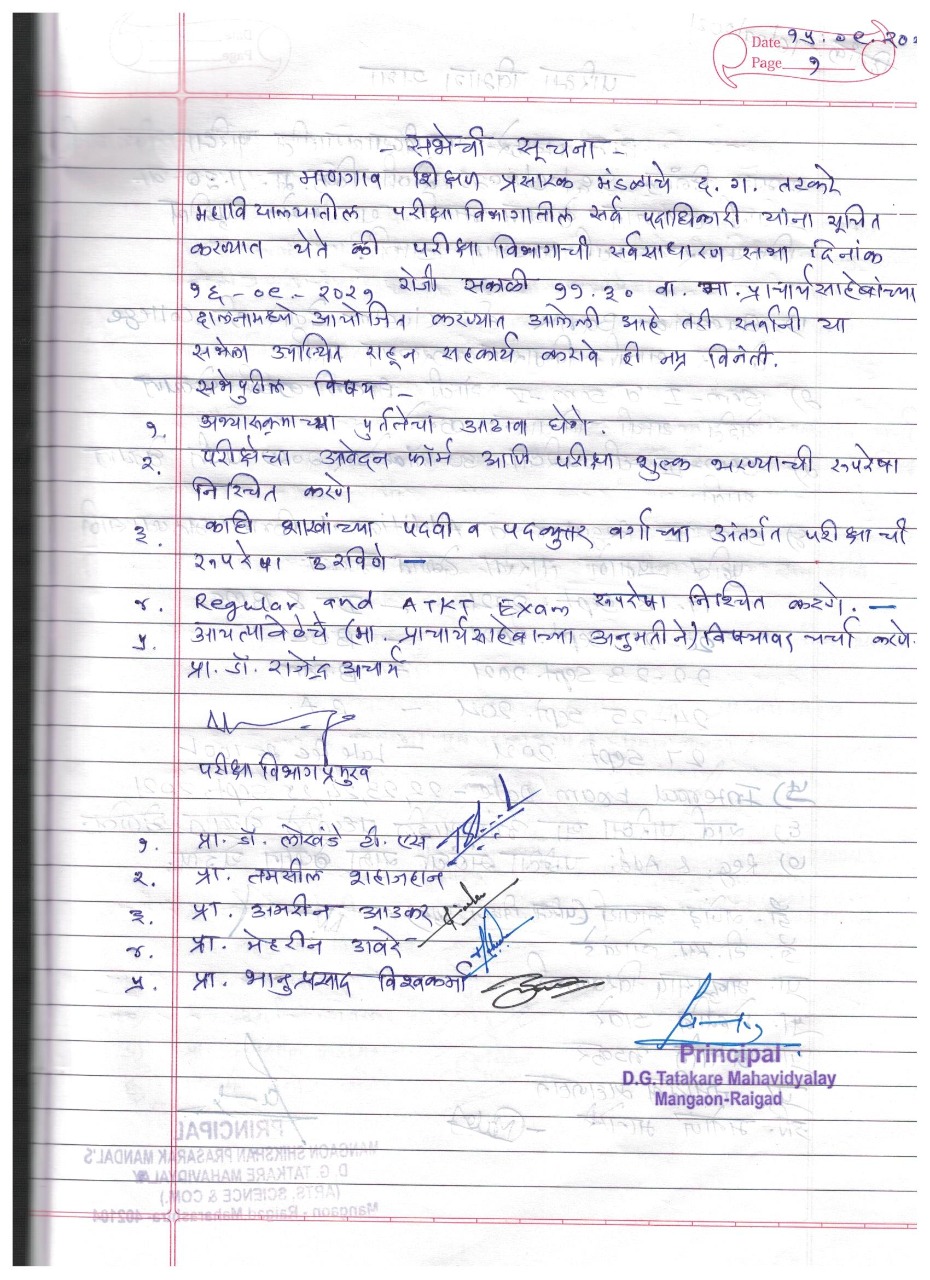 Date १५.०९.२०
Page १
- सभेची सूचना -
माणगाव शिक्षण प्रसारक मंडळाचे द. ग. तटकरे
महाविद्यालयातील परीक्षा विभागातील सर्व पदाधिकारी यांना सूचित
करण्यात येते की परीक्षा विभागाची सर्वसाधारण सभा दिनांक
१६-०९-२०२१ रोजी सकाळी ११.३० वा. मा. प्राचार्यसाहेबांच्या
दालनामध्ये आयोजित करण्यात आलेली आहे तरी सर्वांनी या
सभेला उपस्थित राहून सहकार्य करावे ही नम्र विनंती.
सभेपुढील विषय -
१. अभ्यासक्रमाच्या पुर्ततेचा आढावा घेणे.
२. परीक्षेचा आवेदन फॉर्म आणि परीक्षा शुल्क भरण्याची रुपरेषा
निश्चित करणे
३. काही शाखांच्या पदवी व पदव्युत्तर वर्गाच्या अंतर्गत परीक्षाची
रुपरेषा ठरविणे -
४. Regular and ATKT Exam रुपरेषा निश्चित करणे. -
५ आयत्यावेळेचे (मा. प्राचार्यसाहेबाच्या अनुमतीने) विषयावर चर्चा करणे.
प्रा. डॉ. राजेंद्र आचार्य
परीक्षा विभाग प्रमुख
१. प्रा. डॉ. लोखंडे टी. एस
२. प्रा. तमसील शहाजहान
३. प्रा. अमरीन आउकर
४. प्रा. मेहरीन डावरे
५. प्रा. भानुप्रसाद विश्वकर्मा
Principal
D.G.Tatakare Mahavidyalay
Mangaon-Raigad
PRINCIPAL
MANGAON SHIKSHAN PRASARAK MANDAL'S
D. G. TATKARE MAHAVIDYALAY
(ARTS, SCIENCE & COM.)
Mangaon - Raigad Maharashtra- 402104